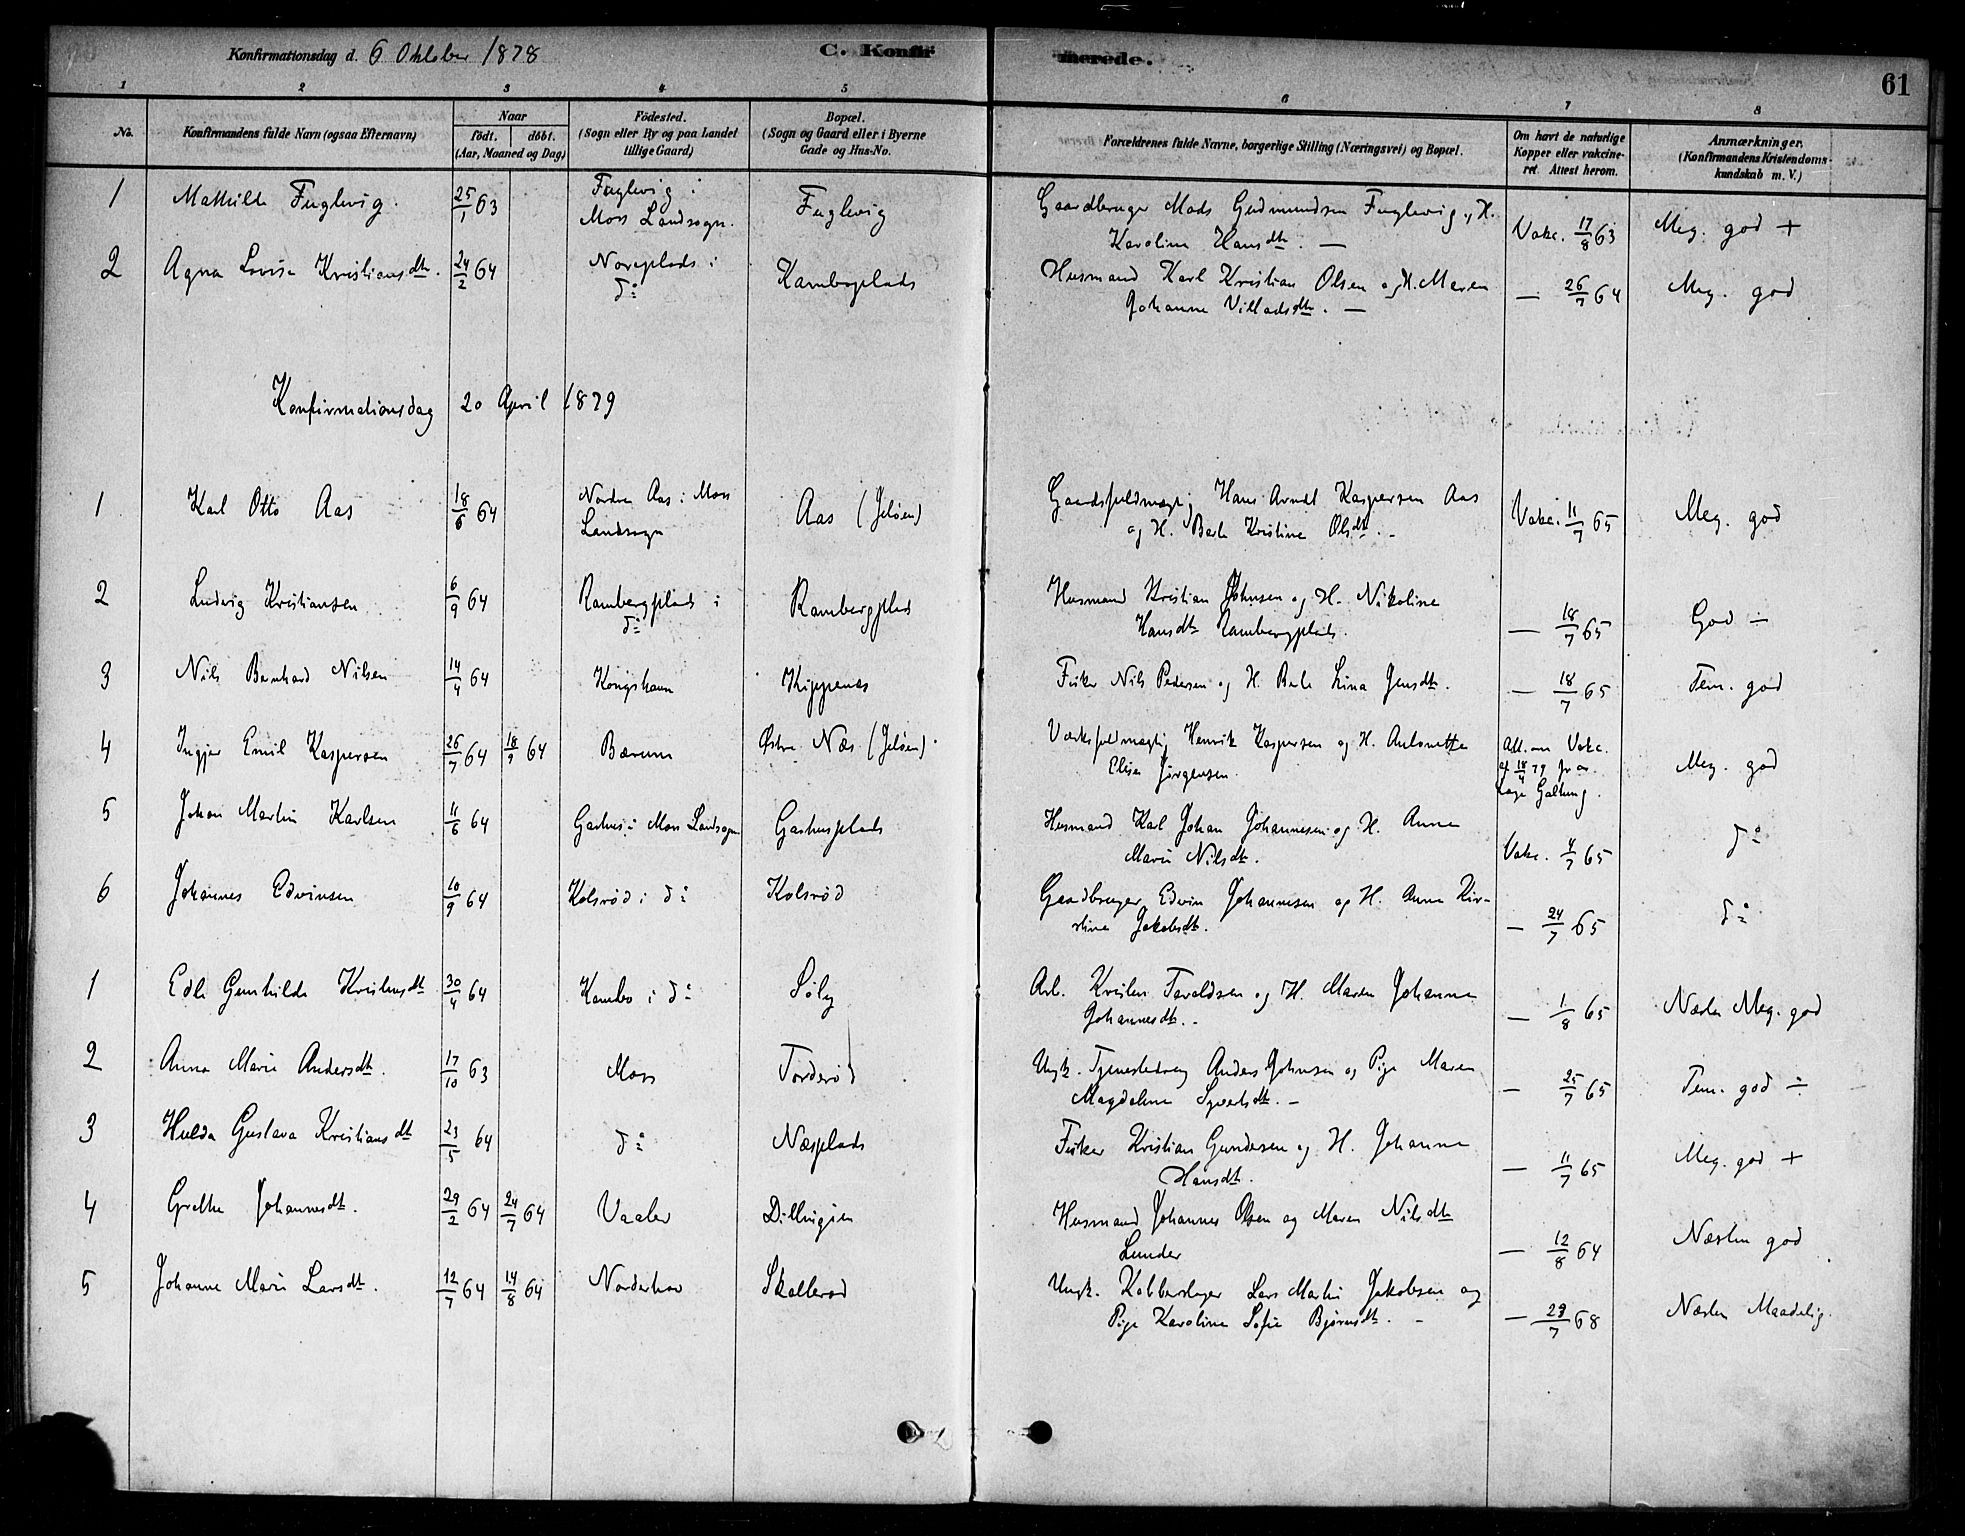 Konfirmationsdag d. 6 Oktober 1878
C. Konfirmerede.
61
1 2 3 4 5 6 7 8
No.
Konfirmandens fulde Navn (ogsaa Efternavn)
Naar
födt. döbt.
(Aar, Maaned og Dag)
Födested.
(Sogn eller By og paa Landet
tillige Gaard)
Bopæl.
(Sogn og Gaard eller i Byerne
Gade og Hus-No.
Forældrenes fulde Navne, borgerlige Stilling (Næringsvei) og Bopæl.
Om havt de naturlige
Kopper eller vakcine-
ret. Attest herom.
Anmærkninger.
(Konfirmandens Kristendoms-
kundskab m. V.)
1 Mathilde Fuglevig. 25/1 63 Fuglevig i Fuglevig Gaardbruger Mads Gudmundsen Fuglevig og H.
Moss Landsogn. Karoline Hansdtr. — Vakc. 17/8 63 Meg. god +
2 Agna Lovise Kristiansdtr. 24/2 64 Noreplads i Kamboplads Husmand Karl Kristian Olsen og H. Maren
do Johanne Villadsdtr. — — 26/7 64 Meg. god
Konfirmationsdag 20 April 1879
1 Karl Otto Aas 18/6 64 Nordre Aas i Moss Aas (Jeløen) Gaardsfuldmægtig Hans Arndt Kaspersen Aas
Landsogn og H. Berte Kristine Olsdtr. - Vakc. 11/7 65 Meg. god
2 Ludvig Kristiansen 6/9 64 Rambergplads i Rambergplads Husmand Kristian Johnsen og H. Nikoline
do Hansdtr Rambergplads. — 18/7 65 God ÷
3 Nils Bernhard Nilsen 14/4 64 Kongshavn Kippenes Fisker Nils Pedersen og H. Berte Lina Jensdtr. — 18/7 65 Tem. god
4 Ingjer Emil Kaspersen 26/7 64 18/9 64 Bærum Østre Næs (Jeløen) Værksfuldmægtig Henrik Kaspersen og H. Antonette
Elisa Jørgensen. Att. om Vakc.
af 18/4 79 fra
Læge Galtung. Meg. god
5 Johan Martin Karlsen 11/6 64 Garhus i Moss Landsogn Garhusplads Husmand Karl Johan Johannesen og H. Anne
Marie Nilsdtr. Vakc. 4/7 65 do
6 Johannes Edvinsen 10/9 64 Kolsrød i do Kolsrød Gaardbruger Edvin Johannesen og H. Anne Kir-
stine Jakobsdtr. — 24/7 65 do
1 Edle Gunhilde Kristensdtr 30/4 64 Kambo i do Solby Arb. Kristen Taraldsen og H. Maren Johanne
Johannesdtr. - — 1/8 65 Næsten Meg. god
2 Anna Marie Andersdtr. 17/10 63 Moss Torderød Ungk. Tjenestedreng Anders Johnsen og Pige Maren
Magdalene Syvertsdtr. — — 25/7 65 Tem. god ÷
3 Hulda Gustava Kristiansdtr 23/5 64 do Næsplads Fisker Kristian Gundersen og H. Johanne
Hansdtr. — 11/7 65 Meg. god +
4 Grethe Johannesdtr. 29/2 64 24/7 64 Vaaler Dillingøen Husmand Johannes Olsen og Maren Nilsdtr
Lunder — 12/8 64 Næsten god
5 Johanne Marie Larsdtr. 12/7 64 14/8 64 Norderhov Skallerød Ungk. Kobberslager Lars Martin Jakobsen og
Pige Karoline Sofie Bjørnsdtr. - — 29/7 68 Næsten Maadelig.